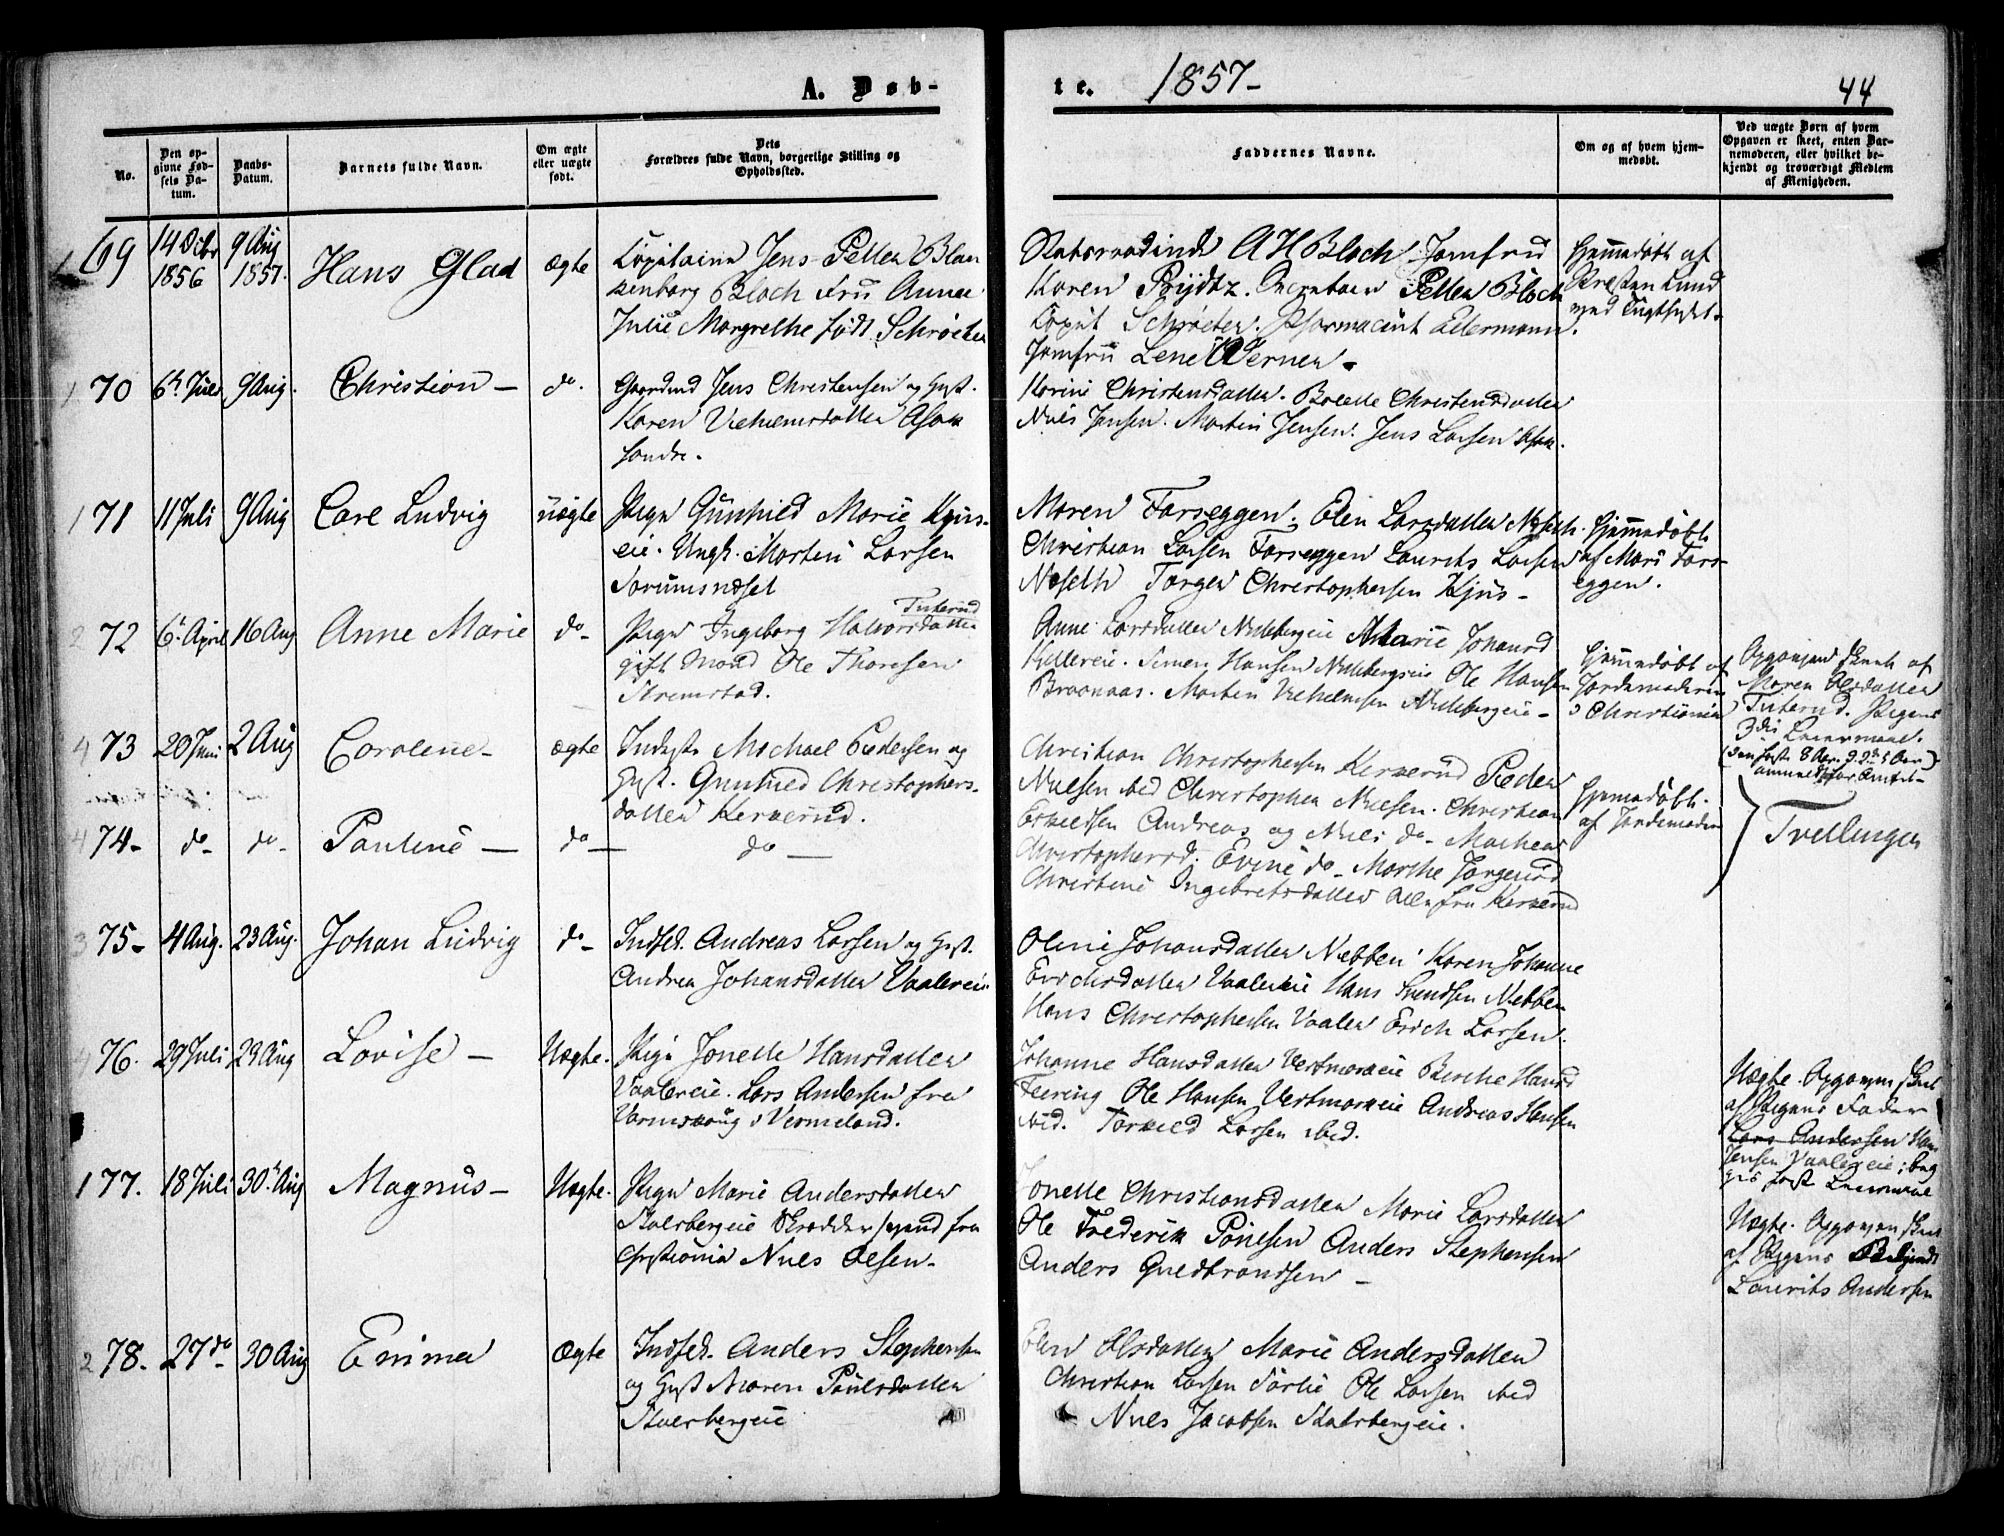 A. Døb-
te.
1857-
44
No.
Den op-
givne Fød-
sels Da-
tum.
Daabs-
Datum.
Barnets fulde Navn.
Om ægte
eller uægte
født.
Dets
Forældres fulde Navn, borgerlige Stilling og
Opholdssted.
Faddernes Navne.
Om og af hvem hjem-
medøbt.
Ved uægte Børn af hvem
Opgaven er skeet, enten Bar-
nemoderen, eller hvilket be-
kjendt og troværdigt Medlem
af Menigheden.
69
14 Octbr
1856
9 Aug
1857.
Hans Glad
ægte
Capitaine Jens Petter Blan
kenborg Bloch Fru Anna
Julie Margrethe født Schrøeter
A H Bloch Jomfru
Karen Prydtz. Petter Bloch
Capit Schrøeter. Pharmaceut Edermann.
Jomfru Lene Werner -
Hjemmedøbt af
Presten Lund
ved
70
6te Juli
9 Aug.
Christian -
do.
Gaardmd Jens Christensen og Hust.
Karen Vilhelmsdatter Asak
søndre.
Karine Christensdatter. Christensdatter
Niels Jensen. Martin Jensen. Jens Larsen Asak.
171
11 Juli
9 Aug
Carl Ludvig
uægte
Pige Gunhild Marie Kjus-
eie. Ungk. Martin Larsen
Sørumsnæset
Maren Farseggen. Elen Larsdatter Neseth.
Christian Larsen Farseggen Laurits Larsen
Neseth Torger Christophersen Kjus -
Hjemmedøbt
af Mari Fars-
eggen.
2 72
6te April
16 Aug
Anne Marie
do-
Tuterud
Pige Ingeborg Halvorsdatter
gift Mand Ole Thoresen
Strømstad.
Anne Larsdatter Marie Johansd
Simen Hansen Ole Hansen
Braanaas. Morten Vilhelmsen
Hjemmedøbt af
Jordemoderen
i Christiania
Opgavene skeet af
Maren Olsdatter
Tuterud. Pigens
3die Leiermaal.
(den første 8 Aar
anmeldt for Amtet-
4 73
20 Juni
2 Aug
Caroline-
ægte
Indst. Michael Pedersen og
Hust. Gunhild Christophers-
datter Kerkerud.
Christian Christophersen Kerkerud Peder
Nielsen ibid Christopher Nielsen. Christian
Eskildsen Andreas og Niels do- Mathea
Christophersd. Eviné do- Marthe Jørgensd
Christine Ingebretsdatter alle fra Kerkerud
Hjemmedøbt.
af Jordemoder
Tvillinger
4 74-
do-
do-
Pauline -
do -
do -
3 75-
4 Aug.
23 Aug.
Johan Ludvig
do-
Indsid. Andreas Larsen og Hust.
Andrea Johansdatter Vaalereie
Oline Johansdatter Nebben. Karen Johanne
Erichsdatter Vaalereie Hans Svendsen Nebben
Hans Christophersen Vaaler Erich Larsen.
4 76.
29 Juli
23 Aug
Lovise -
Uægte.
Pige Jonette Hansdatter
Vaalereie. Lars Andersen fra
Varmskoug i Vermeland.
Johanne Hansdatter Vestmoreie Berthe Hansd
Feiring Ole Hansen Vestmoreie Andreas Hansen
ibid. Torkild Larsen ibid.
Uægte. Opgaven skeet
af Pigens Fader
Lars Andersen Han
Jensen Vaalereie; beg
ges første Leiermaal
177.
18 Juli
30te Aug
Magnus-
Uægte.
Pige Marie Andersdatter
Stalsbergeie Skrædersvend fra
Christiania Niels Olsen-
Jonette Christiansdatter Marie Larsdatter
Ole Frederik Poulsen Anders Stephensen
Anders Guldbrandsen -
Uægte. Opgaven skeet
af Pigens
Laurits Andersen
2 78.
27 do-
30 Aug
Emma
Ægte
Indsid. Anders Stephensen
og Hust Maren Poulsdatter
Stalsbergeie
Elen Olsdatter Marie Andersdatter
Christian Larsen Sørlie Ole Larsen ibid
Niels Jacobsen Stalsbergeie.